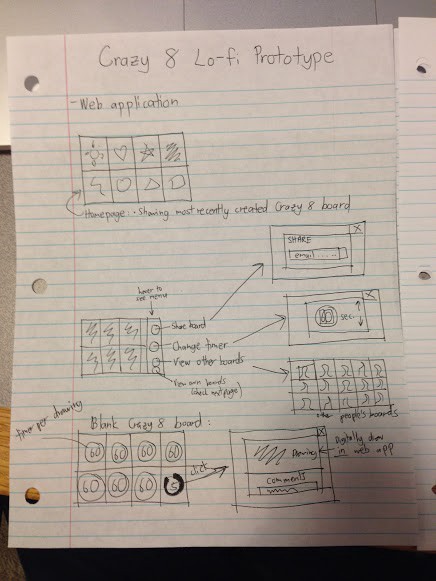 Crazy 8 Lo-fi Prototype
- Web application
Homepage: • Showing most recently created Crazy 8 board
SHARE
X
email ....
hover to
see menu
X
60 sec.
Share board
Change timer
View other boards
View own boards
(check next page)
other people's boards
timer per drawing
Blank Crazy 8 board:
60 60 60 60
60 60 60 5
click
X
Drawing
comments
Digitally draw
in web app